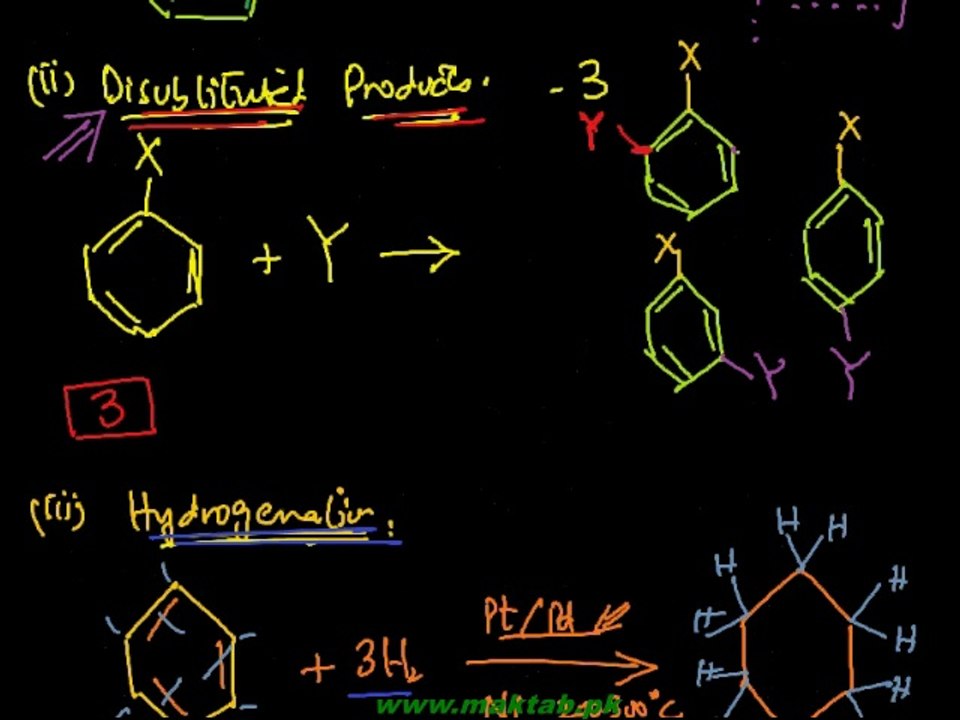 (ii) Disubstituted Products. - 3
X
X
X
Y
+ Y →
X
Y
Y
3
(iii) Hydrogenation.
H H
H H
Pt/Pd
+ 3H₂
H H
H H
www.maktab.pk